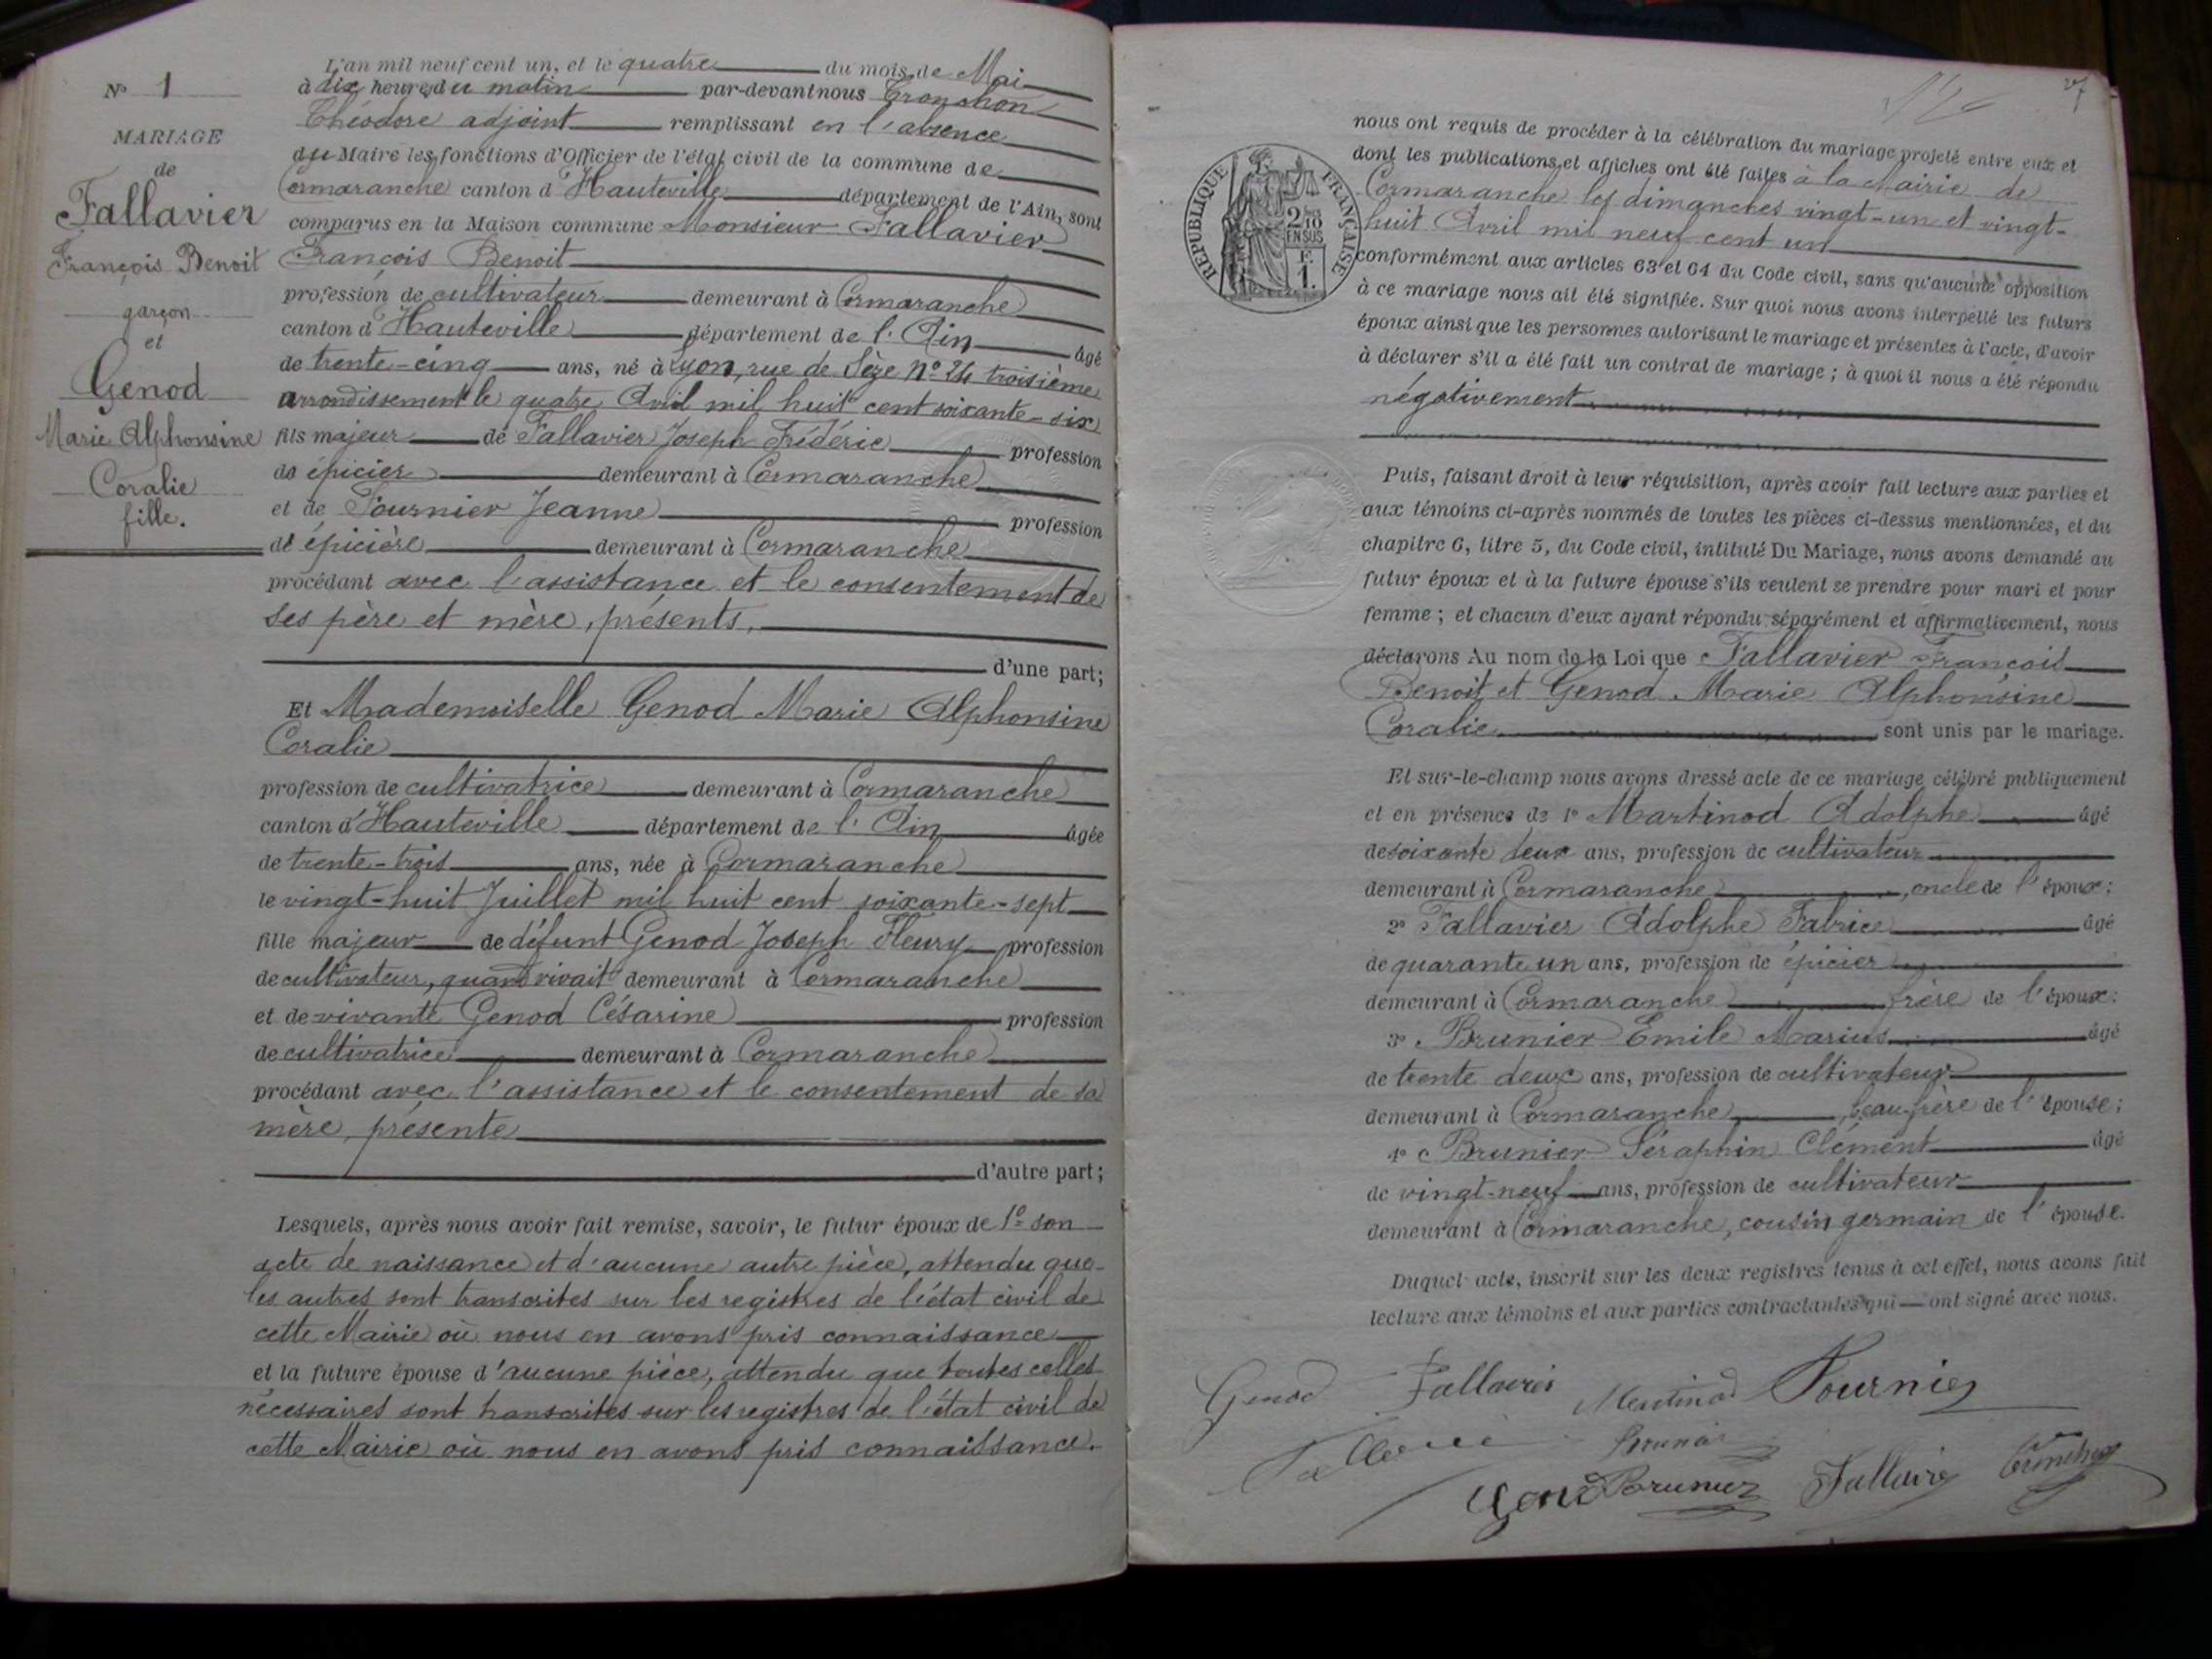 N° 1
MARIAGE
de
Fallavier
François Benoit
garçon
et
Genod
Marie Alphonsine
Coralie
fille.
L'an mil neuf cent un, et le quatre du mois de Mai
à dix heures du matin par-devant nous Tronchon
Théodore adjoint remplissant en l'absence
du Maire les fonctions d'Officier de l'état civil de la commune de
Cormaranche canton d'Hauteville département de l'Ain, sont
comparus en la Maison commune Monsieur Fallavier
François Benoit
profession de cultivateur demeurant à Cormaranche
canton d'Hauteville département de l'Ain âgé
de trente-cinq ans, né à Lyon, rue de Sèze N° 24 troisième
arrondissement le quatre Avril mil huit cent soixante-six
fils majeur de Fallavier Joseph Frédéric profession
de épicier demeurant à Cormaranche
et de Fournier Jeanne profession
de épicière demeurant à Cormaranche
procédant avec l'assistance et le consentement de
ses père et mère, présents,
d'une part;
Et Mademoiselle Genod Marie Alphonsine
Coralie
profession de cultivatrice demeurant à Cormaranche
canton d'Hauteville département de l'Ain âgée
de trente-trois ans, née à Cormaranche
le vingt-huit Juillet mil huit cent soixante-sept
fille majeur de défunt Genod Joseph Fleury profession
de cultivateur, quand vivait demeurant à Cormaranche
et de vivante Genod Césarine profession
de cultivatrice demeurant à Cormaranche
procédant avec l'assistance et le consentement de sa
mère, présente
d'autre part;
Lesquels, après nous avoir fait remise, savoir, le futur époux de 1° son
acte de naissance et d'aucune autre pièce, attendu que
les autres sont transcrites sur les registres de l'état civil de
cette Mairie où nous en avons pris connaissance
et la future épouse d'aucune pièce, attendu que toutes celles
nécessaires sont transcrites sur les registres de l'état civil de
cette Mairie où nous en avons pris connaissance.
27
nous ont requis de procéder à la célébration du mariage projeté entre eux et
dont les publications et affiches ont été faites à la Mairie de
Cormaranche les dimanches vingt-un et vingt-
huit Avril mil neuf cent un
conformément aux articles 63 et 64 du Code civil, sans qu'aucune opposition
à ce mariage nous ait été signifiée. Sur quoi nous avons interpellé les futurs
époux ainsi que les personnes autorisant le mariage et présentes à l'acte, d'avoir
à déclarer s'il a été fait un contrat de mariage; à quoi il nous a été répondu
négativement
RÉPUBLIQUE FRANÇAISE
2/10
EN SUS
F.
1.
Puis, faisant droit à leur réquisition, après avoir fait lecture aux parties et
aux témoins ci-après nommés de toutes les pièces ci-dessus mentionnées, et du
chapitre 6, titre 5, du Code civil, intitulé Du Mariage, nous avons demandé au
futur époux et à la future épouse s'ils veulent se prendre pour mari et pour
femme; et chacun d'eux ayant répondu séparément et affirmativement, nous
déclarons Au nom de la Loi que Fallavier François
Benoit et Genod Marie Alphonsine
Coralie sont unis par le mariage.
Et sur-le-champ nous avons dressé acte de ce mariage célébré publiquement
et en présence de 1° Martinod Adolphe âgé
de soixante deux ans, profession de cultivateur
demeurant à Cormaranche, oncle de l'époux;
2° Fallavier Adolphe Fabrice âgé
de quarante un ans, profession de épicier
demeurant à Cormaranche frère de l'époux;
3° Brunier Emile Marius âgé
de trente deux ans, profession de cultivateur
demeurant à Cormaranche, beau-frère de l'épouse;
4° Brunier Séraphin Clément âgé
de vingt-neuf ans, profession de cultivateur
demeurant à Cormaranche, cousin germain de l'épouse.
Duquel acte, inscrit sur les deux registres tenus à cet effet, nous avons fait
lecture aux témoins et aux parties contractantes qui ont signé avec nous.
Genod Fallavier Martinod Fournier
Brunier
Genod Brunier Fallavier Tronchon